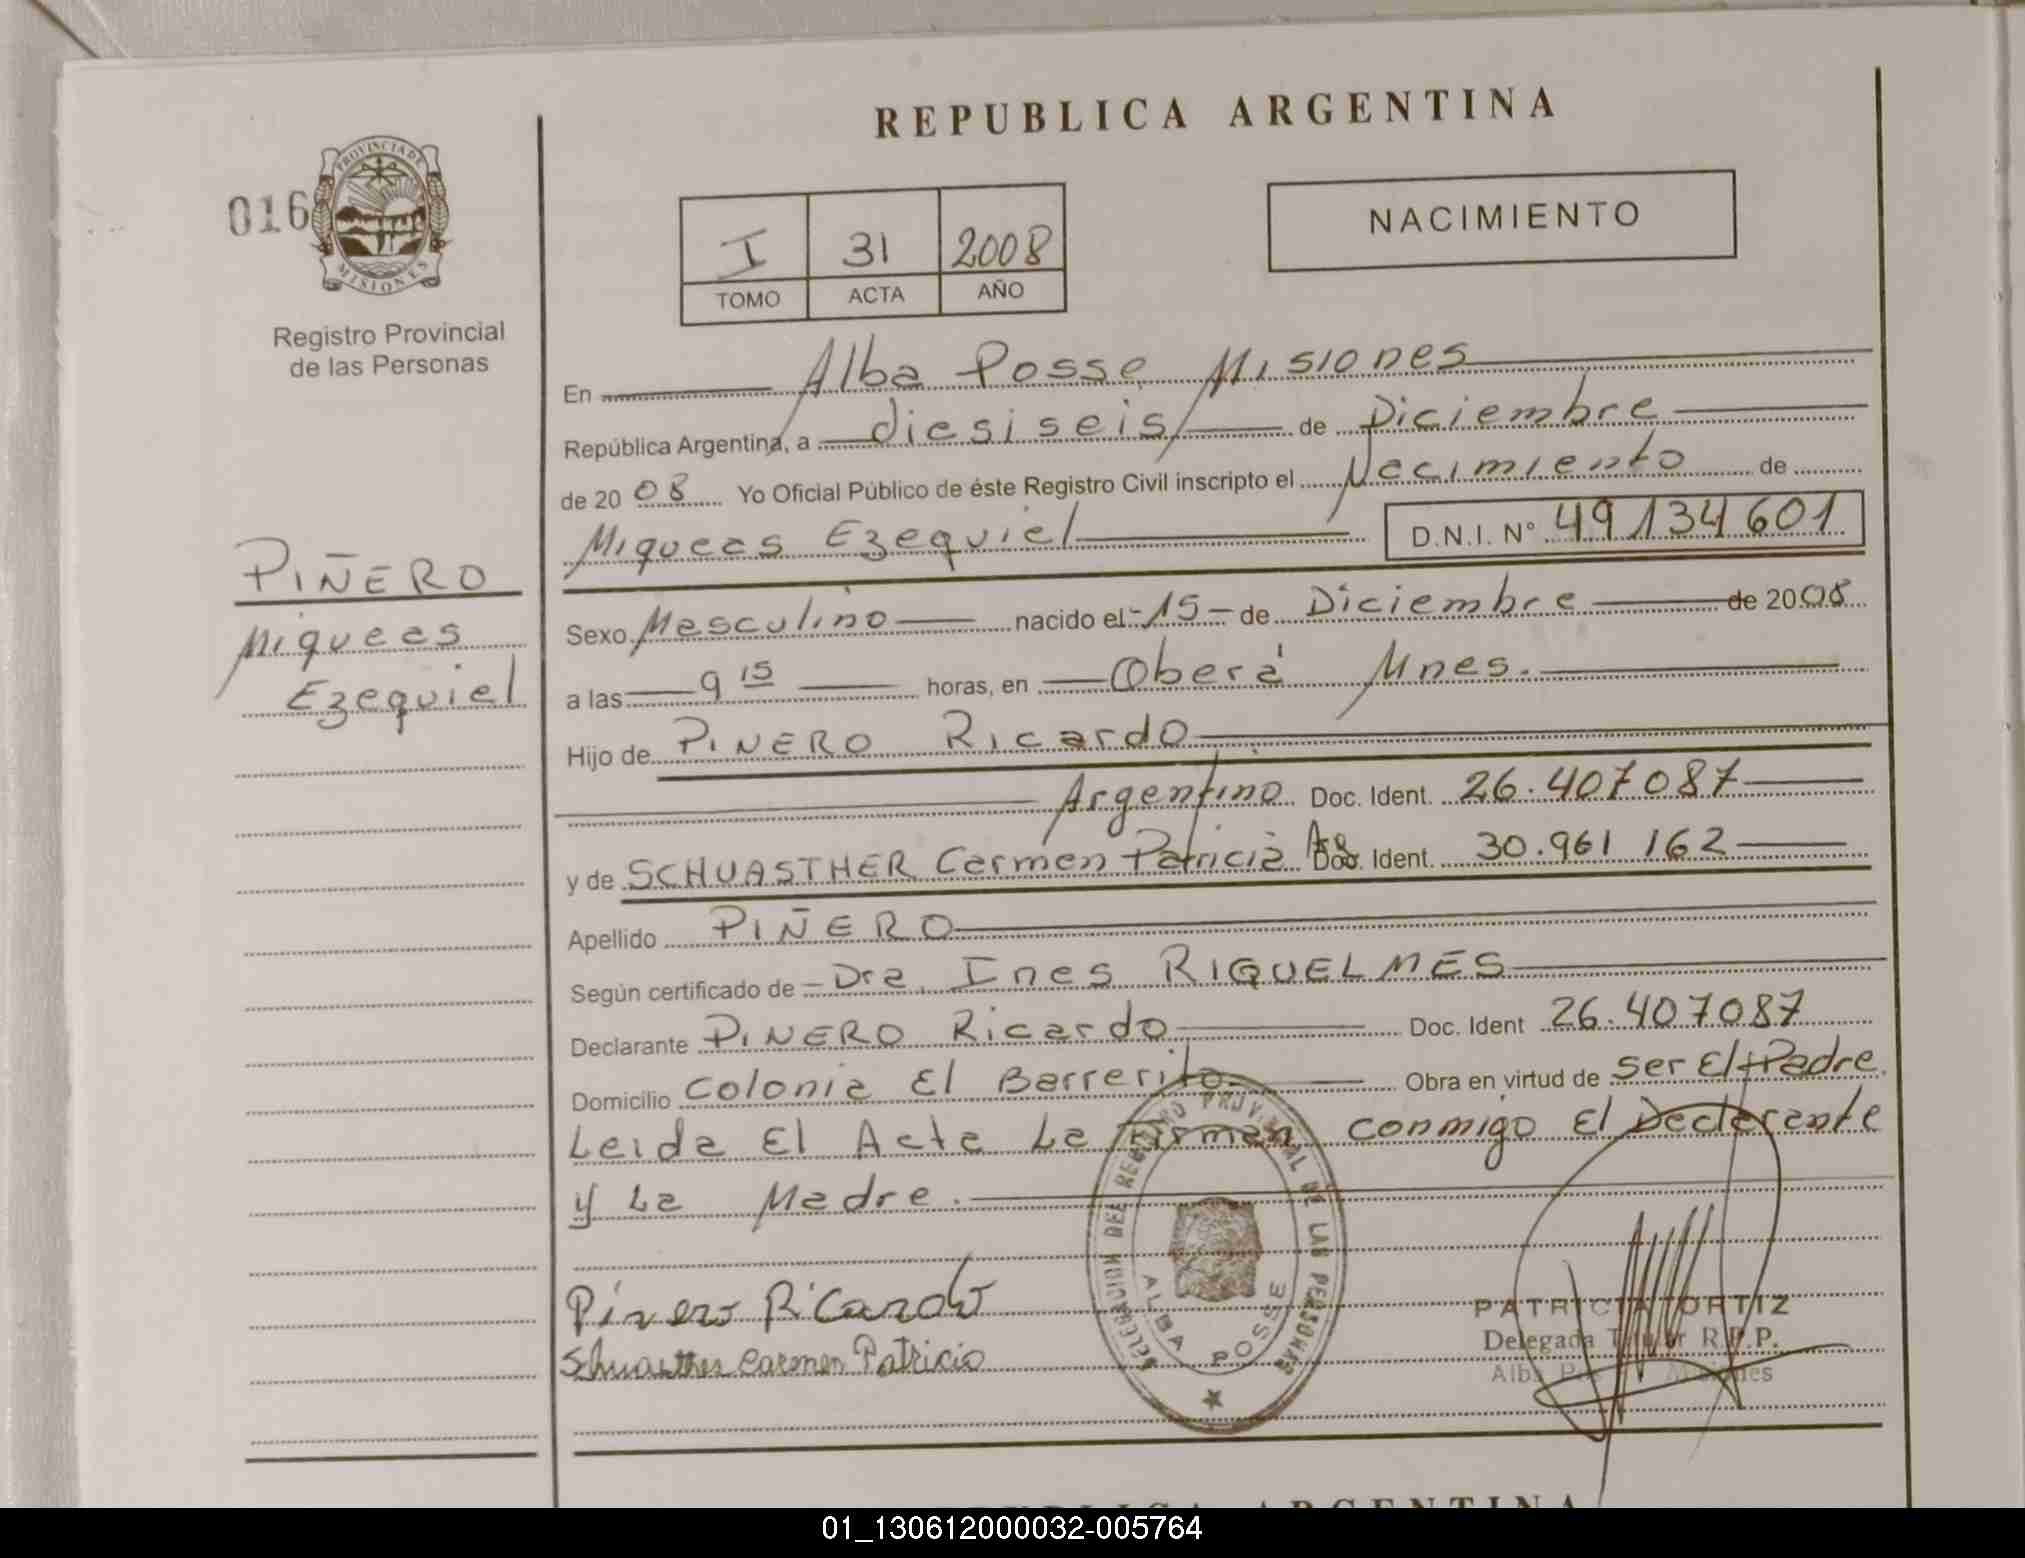 REPUBLICA ARGENTINA
016
PROVINCIA DE
MISIONES
Registro Provincial
de las Personas
I 31 2008
TOMO ACTA AÑO
NACIMIENTO
PIÑERO
Miqueas
Ezequiel
En Alba Posse Misiones
República Argentina, a diesiseis de Diciembre
de 2008 Yo Oficial Público de éste Registro Civil inscripto el Nacimiento de
Miqueas Ezequiel D.N.I. Nº 49134601
Sexo Masculino nacido el -15- de Diciembre de 2008
a las 9 15 horas, en Oberá Mnes.
Hijo de PIÑERO Ricardo
Argentino Doc. Ident. 26.407087
y de SCHUASTHER Carmen Patricia Doc. Ident. 30.961 162
Apellido PIÑERO
Según certificado de - Dra Ines RIQUELMES
Declarante PIÑERO Ricardo Doc. Ident 26.407087
Domicilio Colonia El Barrerito Obra en virtud de Ser El Padre.
Leida El Acta La Firman conmigo El Declarante
y La Madre.
DELEGACION DEL REGISTRO PROVINCIAL DE LAS PERSONAS
ALBA POSSE
Piñero Ricardo
Schuasther Carmen Patricia
PATRICIA ORTIZ
Delegada Titular R.P.P.
Alba Posse Misiones
REPUBLICA ARGENTINA
01_130612000032-005764